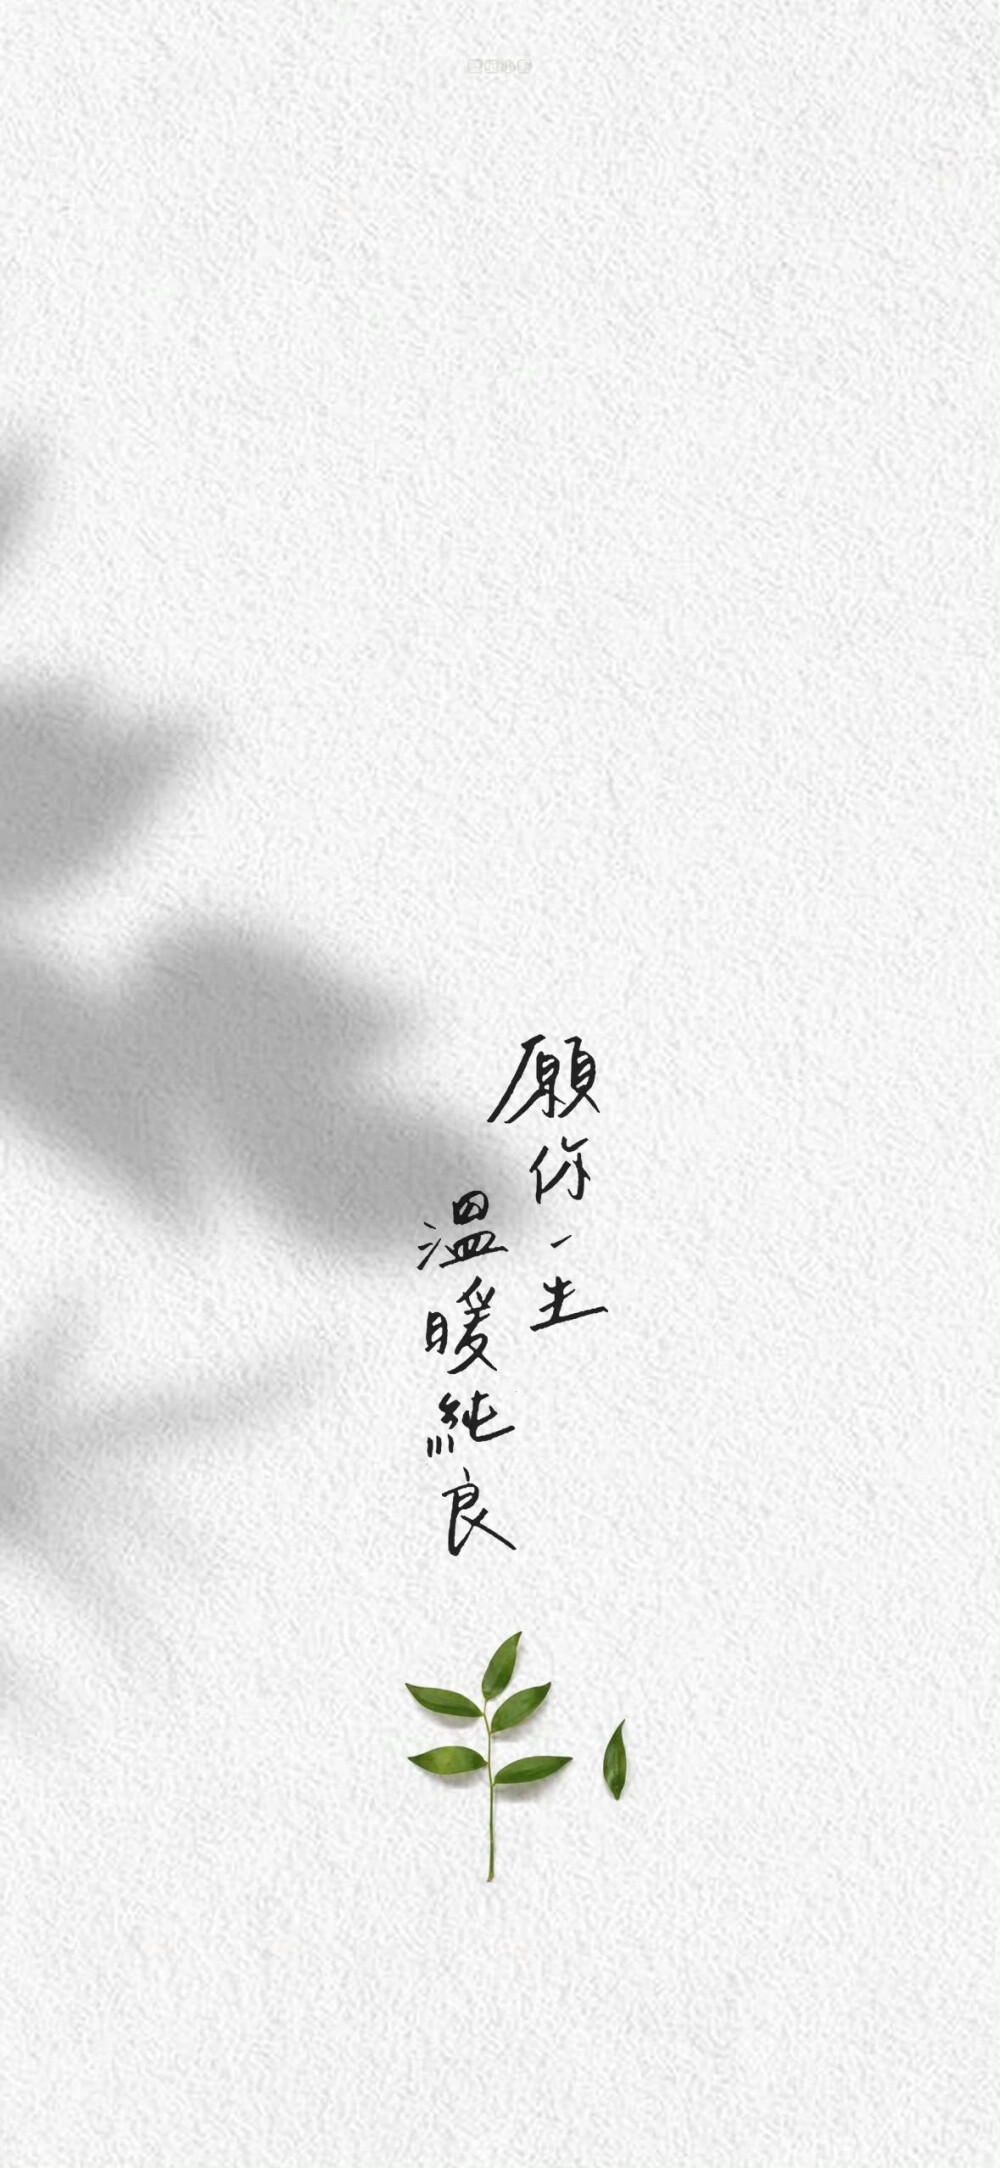 願你一生
溫暖純良